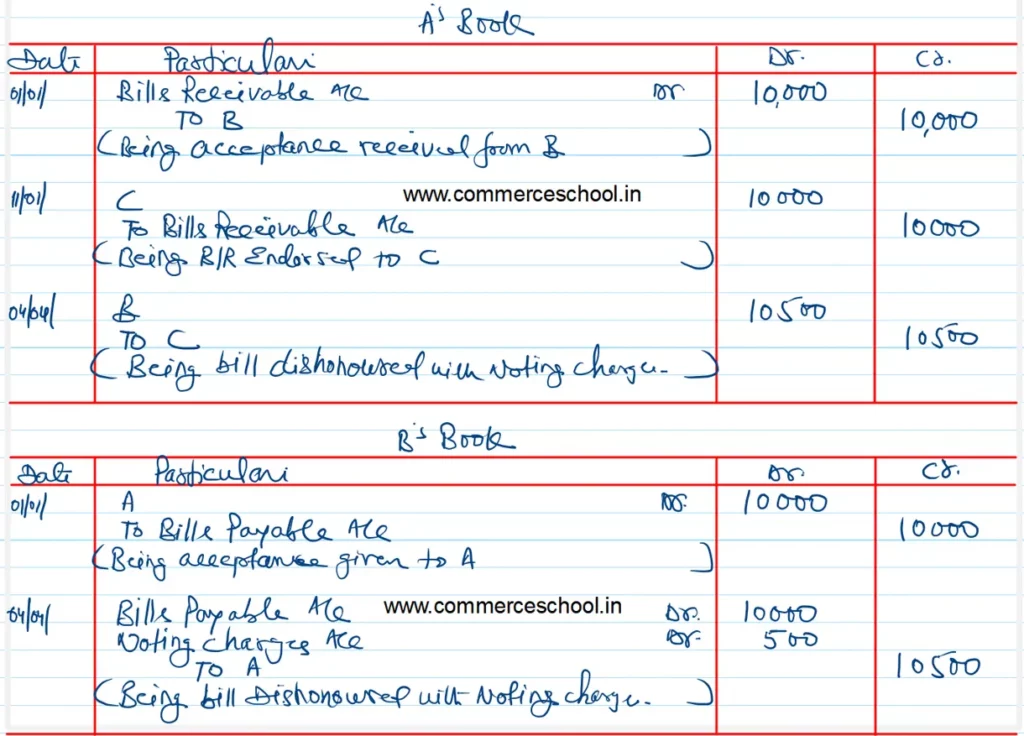 A's Book
Date Particulars Dr. Cr.
01/01/ Bills Receivable A/c Dr 10,000
To B 10,000
(Being acceptance received from B)
11/01/ C 10000
www.commerceschool.in
To Bills Receivable A/c 10000
(Being B/R Endorsed to C)
04/04/ B 10500
To C 10500
(Being bill dishonoured with Noting charge.)
B's Book
Date Particulars Dr. Cr.
01/01/ A Dr. 10000
To Bills Payable A/c 10000
(Being acceptance given to A)
04/04/ Bills Payable A/c Dr. 10000
www.commerceschool.in
Noting charges A/c Dr. 500
To A 10500
(Being bill Dishonoured with Noting charge.)